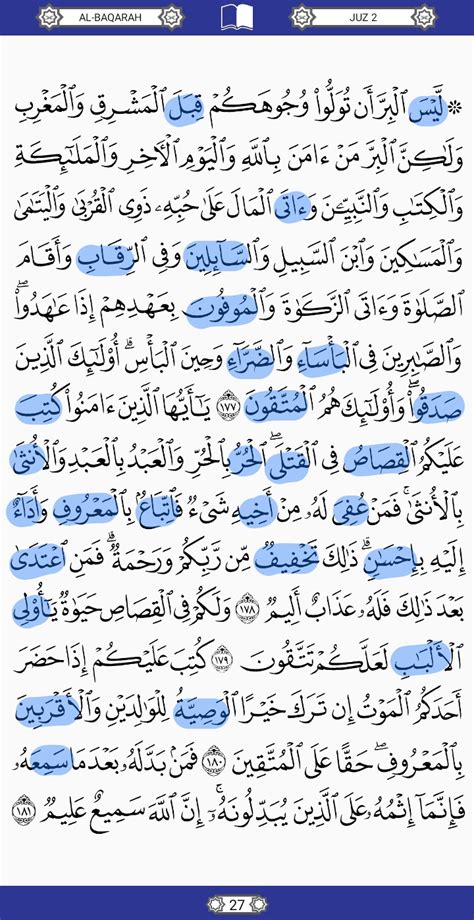 AL-BAQARAH JUZ 2
۞ لَّيْسَ ٱلْبِرَّ أَن تُوَلُّوا۟ وُجُوهَكُمْ قِبَلَ ٱلْمَشْرِقِ وَٱلْمَغْرِبِ
وَلَٰكِنَّ ٱلْبِرَّ مَنْ ءَامَنَ بِٱللَّهِ وَٱلْيَوْمِ ٱلْءَاخِرِ وَٱلْمَلَٰٓئِكَةِ
وَٱلْكِتَٰبِ وَٱلنَّبِيِّۦنَ وَءَاتَى ٱلْمَالَ عَلَىٰ حُبِّهِۦ ذَوِى ٱلْقُرْبَىٰ وَٱلْيَتَٰمَىٰ
وَٱلْمَسَٰكِينَ وَٱبْنَ ٱلسَّبِيلِ وَٱلسَّآئِلِينَ وَفِى ٱلرِّقَابِ وَأَقَامَ
ٱلصَّلَوٰةَ وَءَاتَى ٱلزَّكَوٰةَ وَٱلْمُوفُونَ بِعَهْدِهِمْ إِذَا عَٰهَدُوا۟ ۖ
وَٱلصَّٰبِرِينَ فِى ٱلْبَأْسَآءِ وَٱلضَّرَّآءِ وَحِينَ ٱلْبَأْسِ ۗ أُو۟لَٰٓئِكَ ٱلَّذِينَ
صَدَقُوا۟ ۖ وَأُو۟لَٰٓئِكَ هُمُ ٱلْمُتَّقُونَ ١٧٧ يَٰٓأَيُّهَا ٱلَّذِينَ ءَامَنُوا۟ كُتِبَ
عَلَيْكُمُ ٱلْقِصَاصُ فِى ٱلْقَتْلَى ۖ ٱلْحُرُّ بِٱلْحُرِّ وَٱلْعَبْدُ بِٱلْعَبْدِ وَٱلْأُنثَىٰ
بِٱلْأُنثَىٰ ۚ فَمَنْ عُفِىَ لَهُۥ مِنْ أَخِيهِ شَىْءٌ فَٱتِّبَاعٌۢ بِٱلْمَعْرُوفِ وَأَدَآءٌ
إِلَيْهِ بِإِحْسَٰنٍ ۗ ذَٰلِكَ تَخْفِيفٌ مِّن رَّبِّكُمْ وَرَحْمَةٌ ۗ فَمَنِ ٱعْتَدَىٰ
بَعْدَ ذَٰلِكَ فَلَهُۥ عَذَابٌ أَلِيمٌ ١٧٨ وَلَكُمْ فِى ٱلْقِصَاصِ حَيَوٰةٌ يَٰٓأُو۟لِى
ٱلْأَلْبَٰبِ لَعَلَّكُمْ تَتَّقُونَ ١٧٩ كُتِبَ عَلَيْكُمْ إِذَا حَضَرَ
أَحَدَكُمُ ٱلْمَوْتُ إِن تَرَكَ خَيْرًا ٱلْوَصِيَّةُ لِلْوَٰلِدَيْنِ وَٱلْأَقْرَبِينَ
بِٱلْمَعْرُوفِ ۖ حَقًّا عَلَى ٱلْمُتَّقِينَ ١٨٠ فَمَنۢ بَدَّلَهُۥ بَعْدَمَا سَمِعَهُۥ
فَإِنَّمَآ إِثْمُهُۥ عَلَى ٱلَّذِينَ يُبَدِّلُونَهُۥٓ ۚ إِنَّ ٱللَّهَ سَمِيعٌ عَلِيمٌ ١٨١
27